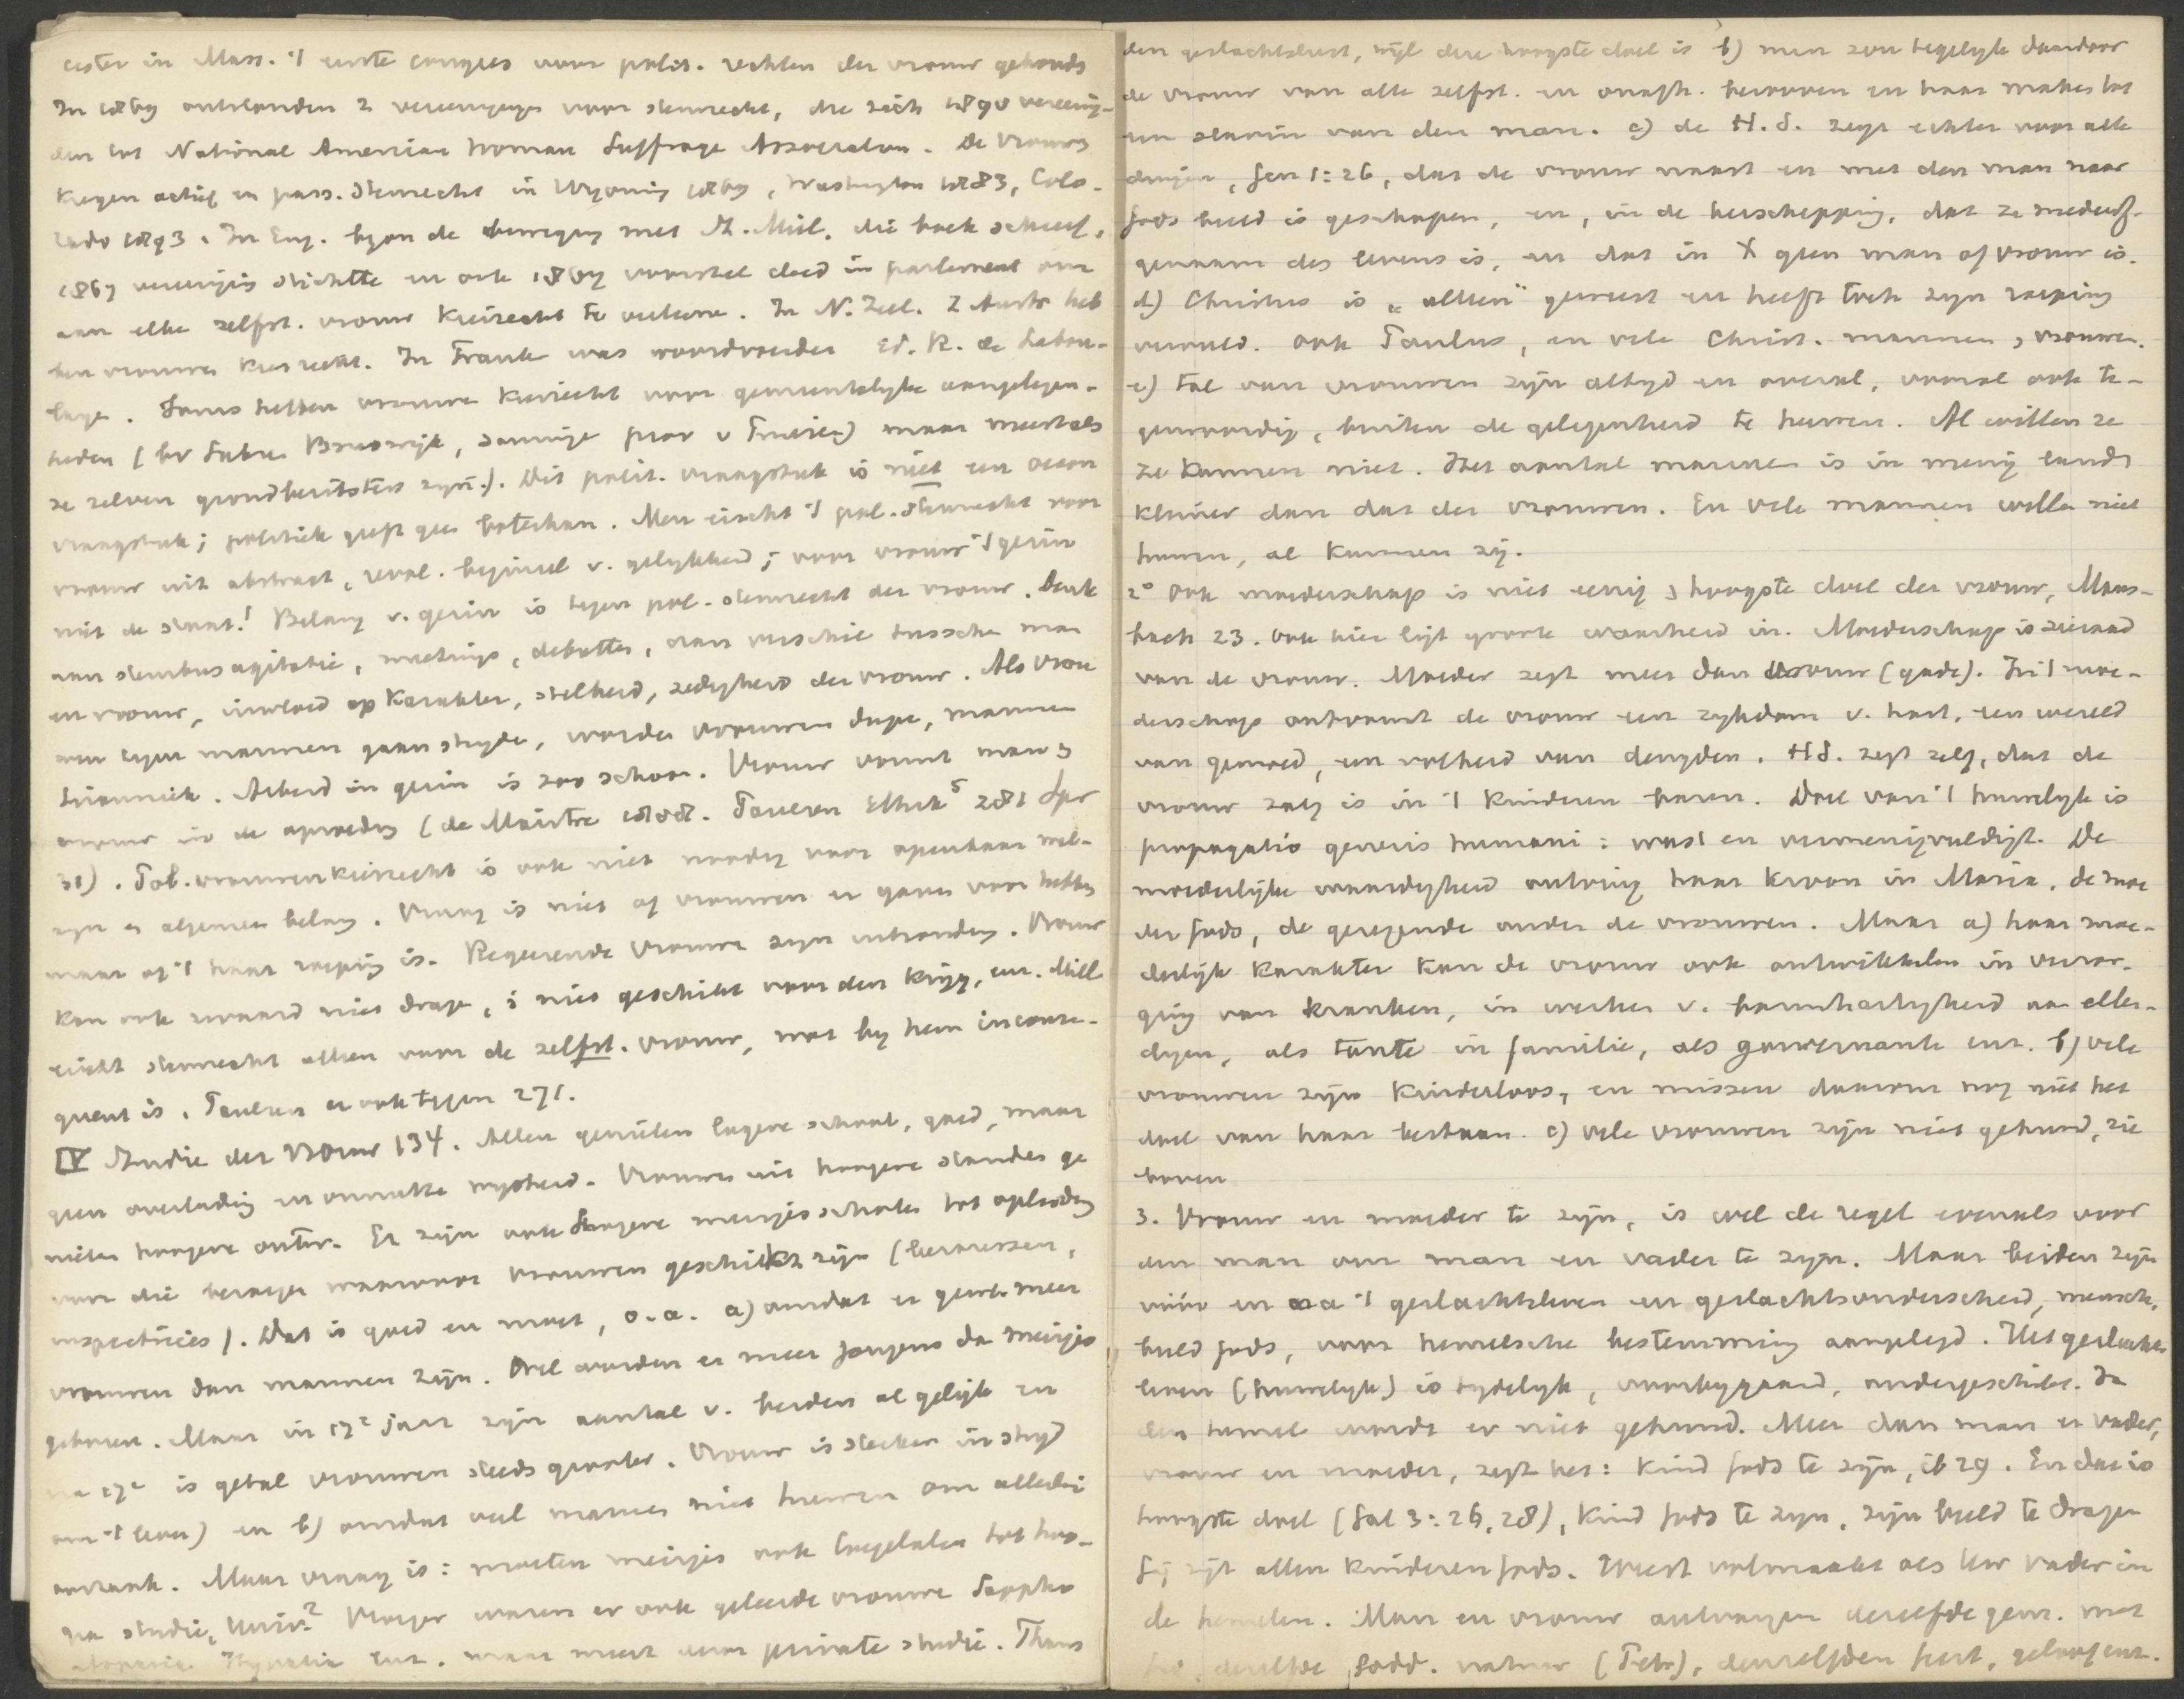 cester in Mass. 't eerste congres voor polit. rechten der vrouw gehouds
In 1869 ontstonden 2 vereenigingen voor stemrecht, die zich 1890 vereenig-
den tot National American Woman Suffrage Association. De vrouws
kregen actief en pass. stemrecht in Wyoming 1869, Washington 1883, Colo-
rado 1893. In Eng. begon de beweging met St. Mill, die boek schreef,
1867 vereeniging stichtte en ook 1867 voorstel deed in parlement om
aan elke zelfst. vrouw kiesrecht te verleenen. In N. Zeel. Z Austr heb
ben vrouwen kiesrecht. In Frankr was woordvoerder Ed. R. de Labou-
laye. Soms hebben vrouwen kiesrecht voor gemeentelijke aangelegen-
heden (bv Brunswijk, sommige prov v Pruisen) maar meestals
ze zelven grondbezitsters zijn). Dit polit. vraagstuk is niet een oecon
vraagstuk; politiek geeft geen boterham. Men eischt 't pol. stemrecht voor
vrouw uit abstract, revol. beginsel v. gelijkheid; voor vrouw 't gezin
niet de staat! Belang v. gezin is tegen pol. stemrecht der vrouw. Denk
aan stembusagitatie, meetings, debatten, aan verschil tusschen man
en vrouw, invloed op karakter, stelheid, zedigheid der vrouw. Als vrou
wen tegen mannen gaan strijden, worden vrouwen dupe, mannen
tirannick. Arbeid in gezin is zoo schoon. Vrouw vormt man &
vrouw in de opvoeding (de Maistre 1808. Paulsen Ethik⁵ 281 Spr
31). Pol. vrouwenkiesrecht is ook niet noodig voor openbaar wel-
zijn en algemeen belang. Vraag is niet of vrouwen er gaven voor hebben
maar of 't haar roeping is. Regeerende vrouwen zijn uitzondering. Vrouw
kan ook zwaard niet dragen, is niet geschikt voor den krijg, enz. Mill
eischt stemrecht alleen voor de zelfst. vrouw, wat bij hem inconse-
quent is. Paulsen er ook tegen 271.
IV Studie der vrouw 134. Allen genieten lagere school, goed, maar
geen overlading en onnutte wijsheid. Vrouwen uit hoogere standen ge
nieten hoogere ontw. Er zijn ook hoogere meisjesscholen tot opleiding
voor die beroepen waarvoor vrouwen geschikt zijn (leeraressen,
inspectrices). Dat is goed en moet, o.a. a) omdat er gewl. meer
vrouwen dan mannen zijn. Wel worden er meer jongens dan meisjes
geboren. Maar in 17e jaar zijn aantal v. beiden al gelijk en
na 17e is getal vrouwen steeds grooter. Vrouw is sterker in strijd
om 't leven) en b) omdat veel mannen niet huwen om allerlei
oorzaak. Maar vraag is: moeten meisjes ook toegelaten tot hoo-
ge studie, Univ.? Vroeger waren er ook geleerde vrouwen Sappho
Hypatia enz. maar meest door private studie. Thans
den geslachtslust, wijl deze hoogste doel is b) men zou tegelijk daardoor
de vrouw van alle zelfst. en onafh. berooven en haar maken tot
een slavin van den man. c) de H.S. zegt echter voor alle
dingen, Gen 1:26, dat de vrouw naast en met den man naar
Gods beeld is geschapen, en, in de herschepping, dat ze medeërf-
genaam des levens is, en dat in X geen man of vrouw is.
d) Christus is „alleen" geweest en heeft toch zijn roeping
vervuld. Ook Paulus, en vele Christ. mannen & vrouwen.
e) tal van vrouwen zijn altijd en overal, vooral ook te-
genwoordig, buiten de gelegenheid te huwen. Al willen ze
ze kunnen niet. Het aantal mannen is in menig land
kleiner dan dat der vrouwen. En vele mannen willen niet
huwen, al kunnen zij.
2° Ook moederschap is niet eenig & hoogste doel der vrouw, Maus-
bach 23. Ook hier ligt groote waarheid in. Moederschap is sieraad
van de vrouw. Moeder zegt meer dan vrouw (gade). In 't moe-
derschap ontvangt de vrouw een rijkdom v. hart, een wereld
van gemoed, een volheid van deugden. HS. zegt zelf, dat de
vrouw zalig is in 't kinderen baren. Doel van 't huwelijk is
propagatio generis humani: wast en vermenigvuldigt. De
moederlijke waardigheid ontving haar kroon in Maria, de moe
der Gods, de gezegende onder de vrouwen. Maar a) haar moe-
derlijk karakter kan de vrouw ook ontwikkelen in verzor-
ging van kranken, in werken v. barmhartigheid aan ellen-
digen, als tante in familie, als gouvernante enz. b) vele
vrouwen zijn kinderloos, en missen daarom nog niet het
doel van haar bestaan. c) vele vrouwen zijn niet gehuwd, zie
boven
3. Vrouw en moeder te zijn, is wel de regel evenals voor
een man om man en vader te zijn. Maar beiden zijn
vóór en na 't geslachtsleven en geslachtsonderscheid, mensch,
beeld Gods, voor hemelsche bestemming aangelegd. Het geslachts
leven (huwelijk) is tijdelijk, voorbijgaand, ondergeschikt. In
den hemel wordt er niet gehuwd. Meer dan man en vader,
vrouw en moeder, zegt het: kind Gods te zijn, ib 29. En dat is
hoogste doel (Gal 3:26,28), kind Gods te zijn, zijn beeld te dragen
Gij zijt allen kinderen Gods. Weest volmaakt als Uw Vader in
de hemelen. Man en vrouw ontvangen dezelfde genr. met
dezelfde Godd. natuur (Petr), denzelfden geest, geloof enz.